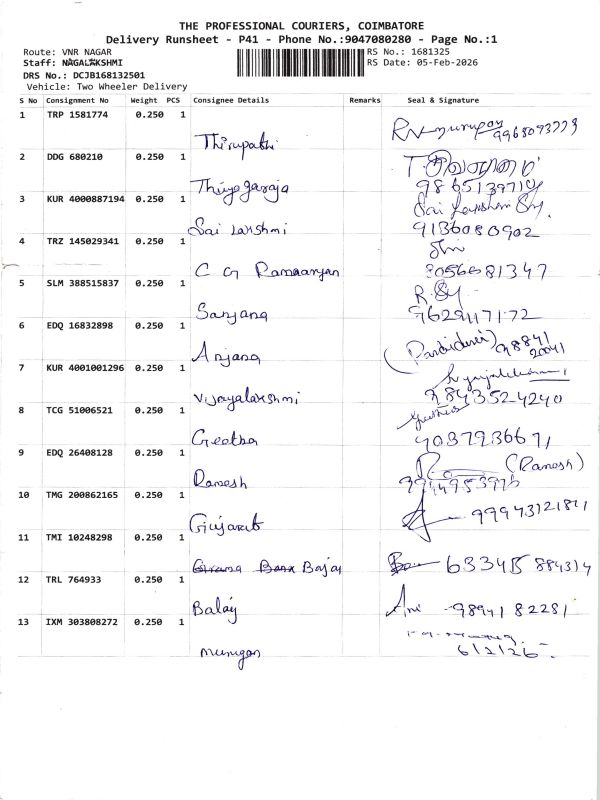 THE PROFESSIONAL COURIERS, COIMBATORE
Delivery Runsheet - P41 - Phone No.:9047080280 - Page No.:1
Route: VNR NAGAR
RS No.: 1681325
Staff: NAGALAKSHMI
RS Date: 05-Feb-2026
DRS No.: DCJB168132501
Vehicle: Two Wheeler Delivery
S No Consignment No Weight PCS Consignee Details Remarks Seal & Signature
1 TRP 1581774 0.250 1
Thirupathi
2 DDG 680210 0.250 1
Thiyagaraja
3 KUR 4000887194 0.250 1
Sai Lakshmi
9136080902
4 TRZ 145029341 0.250 1
C G Ramaanyan
8056681347
5 SLM 388515837 0.250 1
Sanjana
6 EDQ 16832898 0.250 1
Anjana
98841
20041
7 KUR 4001001296 0.250 1
Vijayalakshmi
9843524240
8 TCG 51006521 0.250 1
Geetha
9 EDQ 26408128 0.250 1
Ramesh (Ramesh)
10 TMG 200862165 0.250 1
Gujarat
11 TMI 10248298 0.250 1
Bajaj
63345 884314
12 TRL 764933 0.250 1
Balaj
9894182281
13 IXM 303808272 0.250 1
Murugan
6/2/26